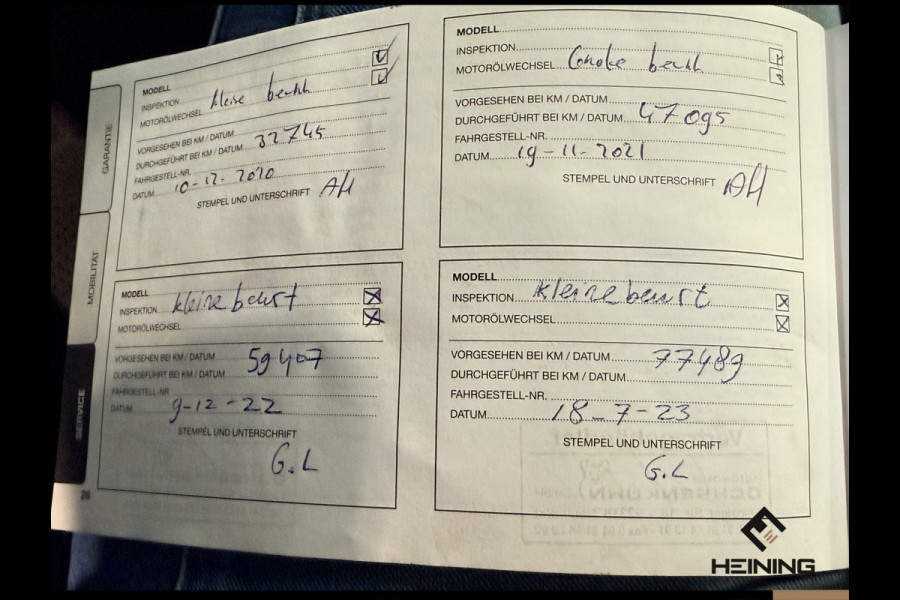 GARANTIE
MOBILITÄT
SERVICE
28
MODELL
INSPEKTION kleine beurt
MOTORÖLWECHSEL
VORGESEHEN BEI KM / DATUM
DURCHGEFÜHRT BEI KM / DATUM 32745
FAHRGESTELL-NR.
DATUM 10-12-2020
STEMPEL UND UNTERSCHRIFT AH
MODELL
INSPEKTION
MOTORÖLWECHSEL Grote beurt
VORGESEHEN BEI KM / DATUM
DURCHGEFÜHRT BEI KM / DATUM 47095
FAHRGESTELL-NR.
DATUM 19-11-2021
STEMPEL UND UNTERSCHRIFT AH
MODELL
INSPEKTION kleine beurt
MOTORÖLWECHSEL
VORGESEHEN BEI KM / DATUM 59407
DURCHGEFÜHRT BEI KM / DATUM
FAHRGESTELL-NR.
DATUM 9-12-22
STEMPEL UND UNTERSCHRIFT
G.L
MODELL
INSPEKTION kleine beurt
MOTORÖLWECHSEL
VORGESEHEN BEI KM / DATUM 77483
DURCHGEFÜHRT BEI KM / DATUM
FAHRGESTELL-NR.
DATUM 18-7-23
STEMPEL UND UNTERSCHRIFT
G.L
HEINING